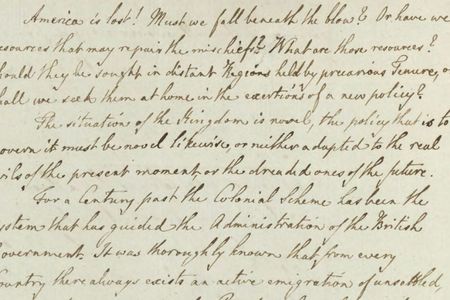 America is lost! Must we fall beneath the blow? Or have we
resources that may repair the mischiefs? What are those resources?
should they be sought in distant Regions held by precarious Tenure, or
hall we seek them at home in the exertions of a new policy?
The situation of the Kingdom is novel, the policy that is to
govern it must be novel likewise, or neither adapted to the real
vils of the present moment, or the dreaded ones of the future.
For a Century past the Colonial Scheme has been the
system that has guided the Administration of the British
Government. It was thoroughly known that from every
Country there always exists an active emigration of unsettled,